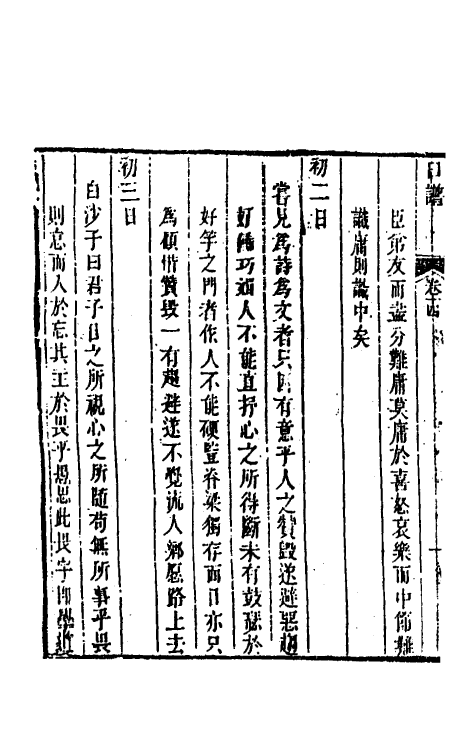 日譜 卷十四
臣弟友而盡分難庸莫庸於喜怒哀樂而中節難
識庸則識中矣
初二日
嘗見為詩為文者只因有意乎人之贊毀遂避惡趨
好稱巧逎人不能直抒心之所得斷未有鼓瑟於
好竽之門者作人不能硬豎脊梁獨存面目亦只
為傾借贊毀一有趨避遂不覺流入鄉愿路上去
初三日
白沙子曰君子目之所視心之所隨苟無所事乎畏
則忘而入於忘其主於畏乎愚思此畏字即學道